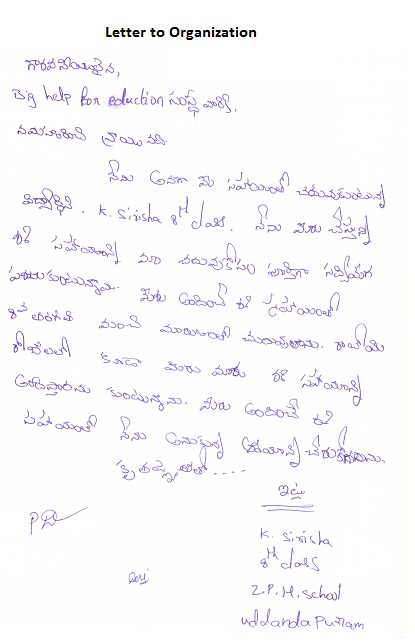 Letter to Organization
గౌరవనీయులైన,
Big help for eduction సంస్థ వారికి,
నమస్కరించి వ్రాయునది.
నేను అనగా మీ సహాయంతో చదువుకుంటున్న
విద్యార్థిని. K. Sirisha 8th class. నేను మీరు చేస్తున్న
ఈ సహాయాన్ని మా చదువుకోసం పూర్తిగా
మీరు అందించే ఈ సహాయంతో
8వ తరగతి మంచి మార్కులతో
రోజులలో కూడా మీరు మాకు ఈ సహాయాన్ని
అందిస్తారను కుంటున్నాను. మీరు అందించే ఈ
సహాయంతో నేను అనుకున్న చేరుకుంటాను.
కృతజ్ఞతలతో....
ఇట్లు
K. Sirisha
8th class
Z.P.H. School
Uddanda Puram